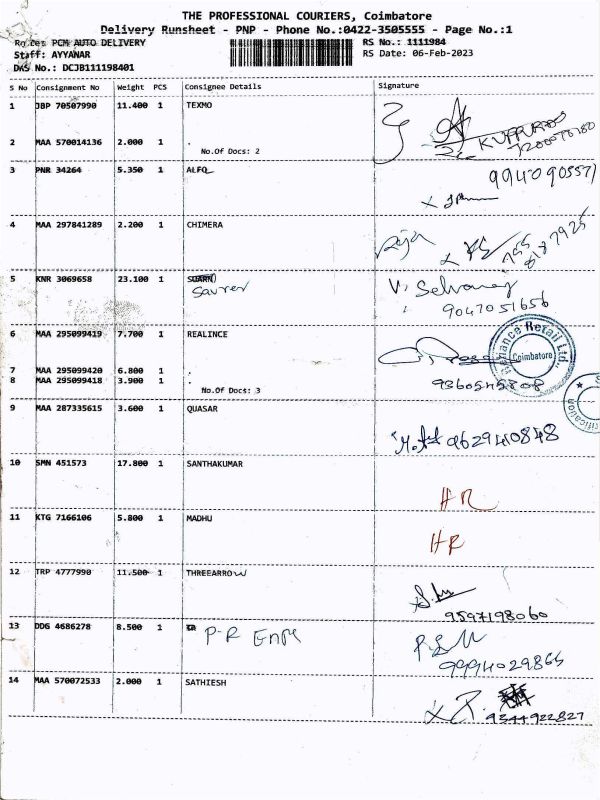 THE PROFESSIONAL COURIERS, Coimbatore
Delivery Runsheet - PNP - Phone No.:0422-3505555 - Page No.:1
PCM AUTO DELIVERY
RS No.: 1111984
Staff: AYYANAR
RS Date: 06-Feb-2023
DRS No.: DCJB111198401
S No Consignment No Weight PCS Consignee Details Signature
1 JBP 70507990 11.400 1 TEXMO
2 MAA 570014136 2.000 1 .
No.Of Docs: 2
3 PNR 34264 5.350 1 ALFO
4 MAA 297841289 2.200 1 CHIMERA
5 KNR 3069658 23.100 1
V. Selvaraj
9047051656
6 MAA 295099419 7.700 1 REALINCE
Reliance Retail Ltd.,
Coimbatore
7 MAA 295099420 6.800 1 .
8 MAA 295099418 3.900 1 .
9360545808
No.Of Docs: 3
9 MAA 287335615 3.600 1 QUASAR
9629410848
10 SMN 451573 17.800 1 SANTHAKUMAR
HR
11 KTG 7166106 5.800 1 MADHU
HR
12 TRP 4777990 11.500 1 THREEARROW
9597198060
13 DDG 4686278 8.500 1 P-R
14 MAA 570072533 2.000 1 SATHIESH
9344922827